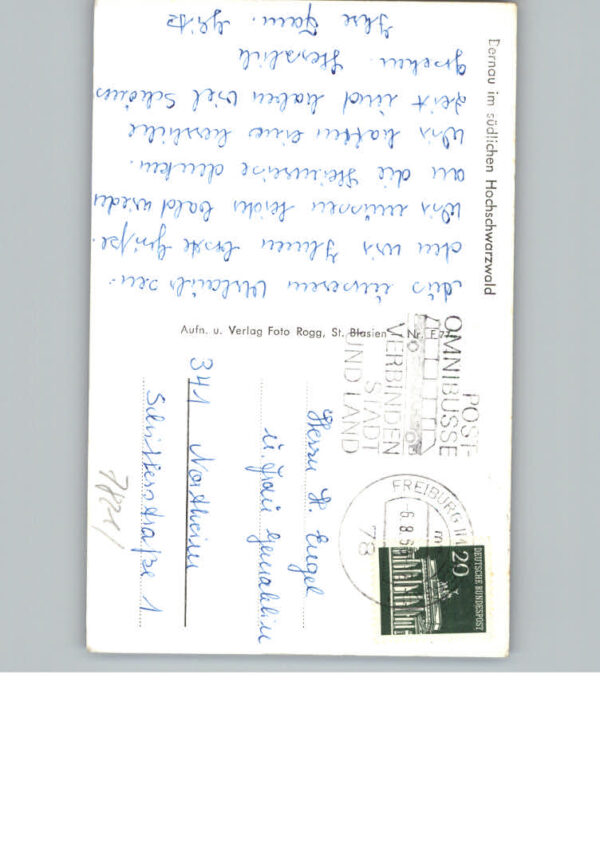 Bernau im südlichen Hochschwarzwald
Aus unserem Urlaub sen-
den wir Ihnen beste Grüße.
Wir müssen leider bald wieder
an die Heimreise denken.
Wir hatten eine herrliche
Zeit und haben viel Schönes
gesehen. Herzlich
Ihre Fam.
Aufn. u. Verlag Foto Rogg, St. Blasien — Nr. F 77
POST-
OMNIBUSSE
VERBINDEN
STADT
UND LAND
FREIBURG
-6.8.6
78
20
DEUTSCHE BUNDESPOST
Herrn H. Engel
u. Frau Gemahlin
341 Northeim
Schillerstraße 1
7821/